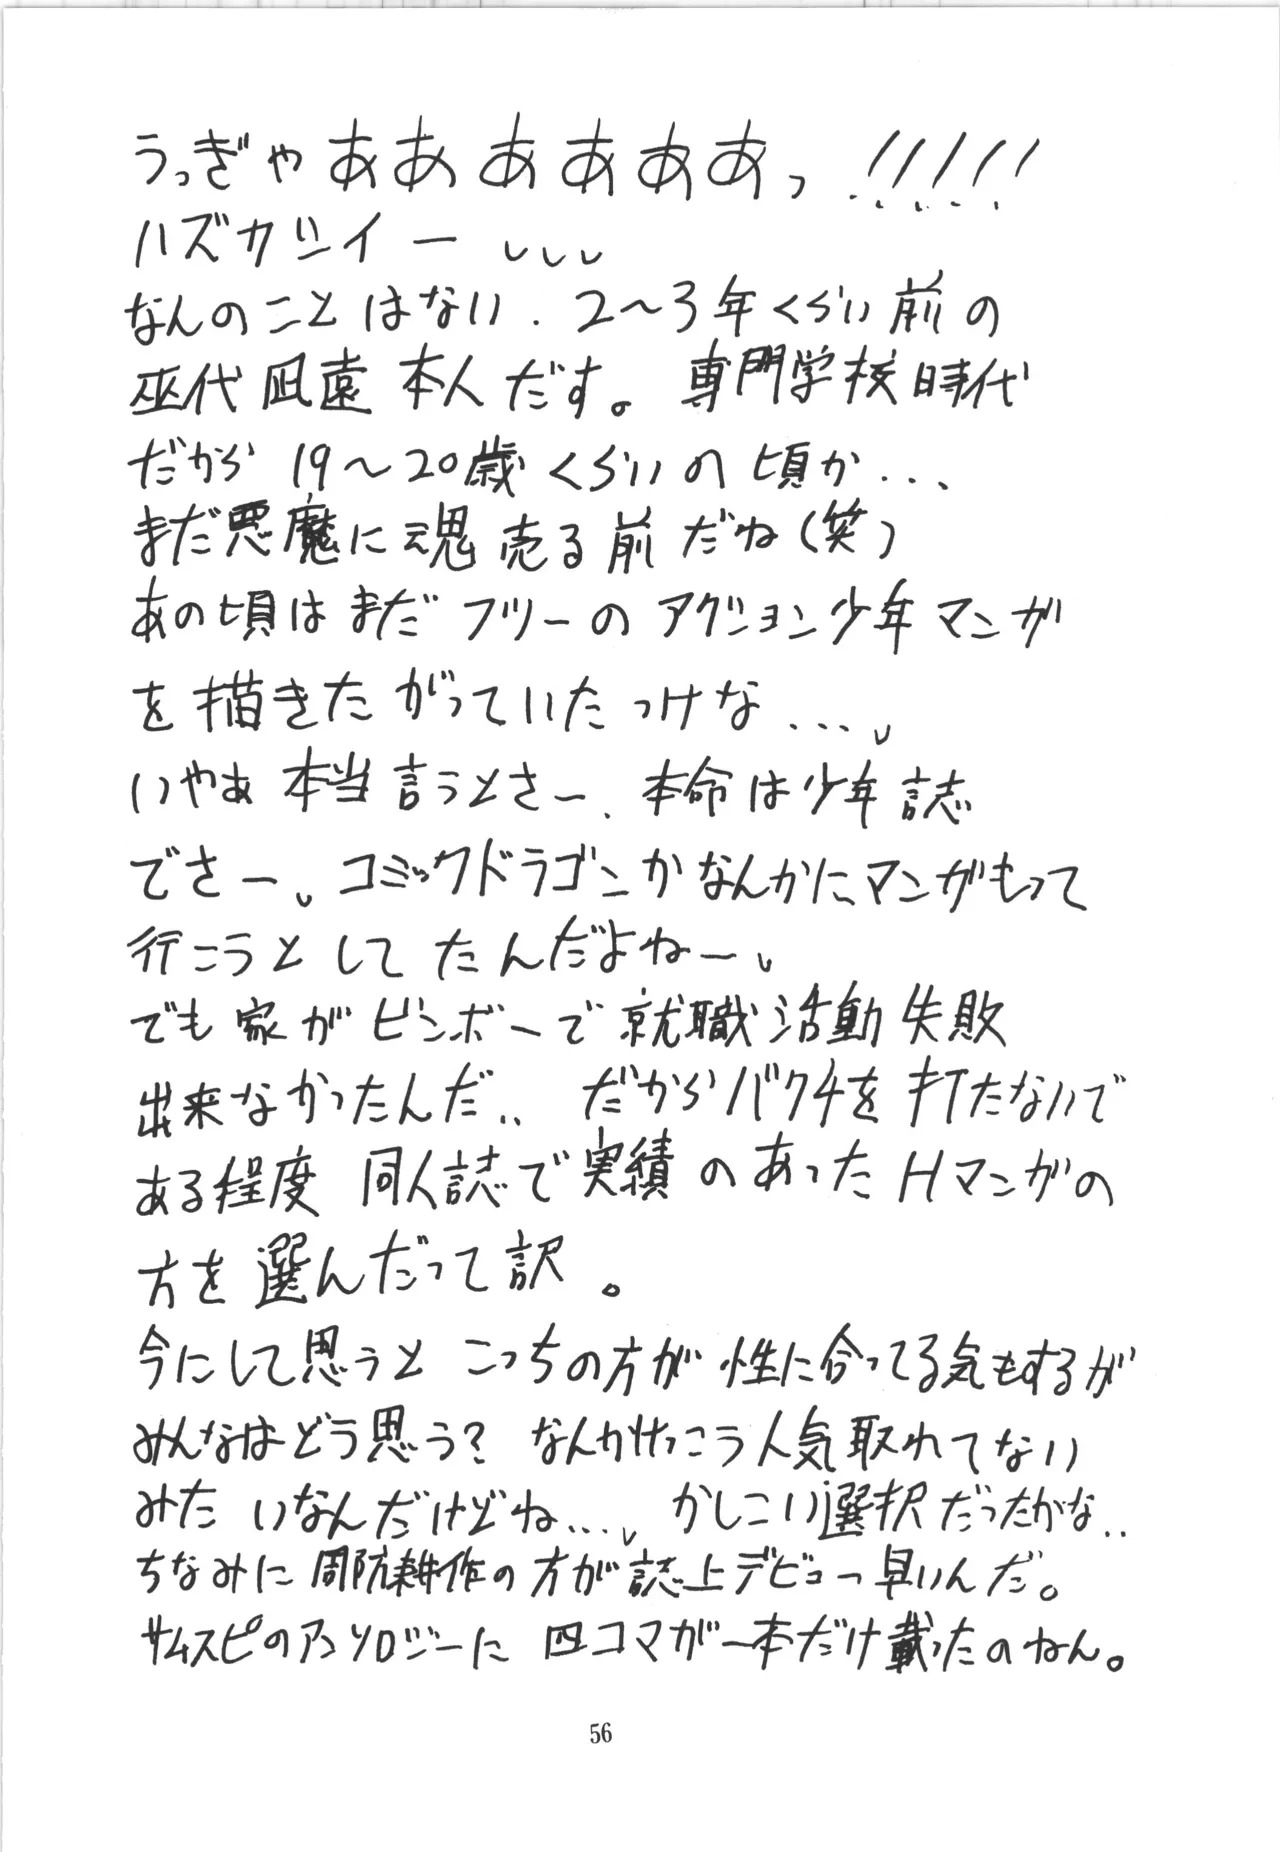 うっぎゃあああああああっ!!!!!
ハズカシイー
なんのことはない、2〜3年くらい前の
巫代凪遠本人だす。専門学校時代
だから19〜20歳くらいの頃か...、
まだ悪魔に魂売る前だね(笑)
あの頃はまだフツーのアクション少年マンガ
を描きたがっていたっけな...、
いやぁ本当言うとさー、本命は少年誌
でさー。コミックドラゴンかなんかにマンガもって
行こうとしてたんだよねー、
でも家がビンボーで就職活動失敗
出来なかったんだ.. だからバクチを打たないで
ある程度同人誌で実績のあったHマンガの
方を選んだって訳。
今にして思うとこっちの方が性に合ってる気もするが
みんなはどう思う?なんかけっこう人気取れてない
みたいなんだけどね...、かしこい選択だったかな..
ちなみに周防耕作の方が誌上デビュー早いんだ。
サムスピのアンソロジーに四コマが一本だけ載ったのねん。
56